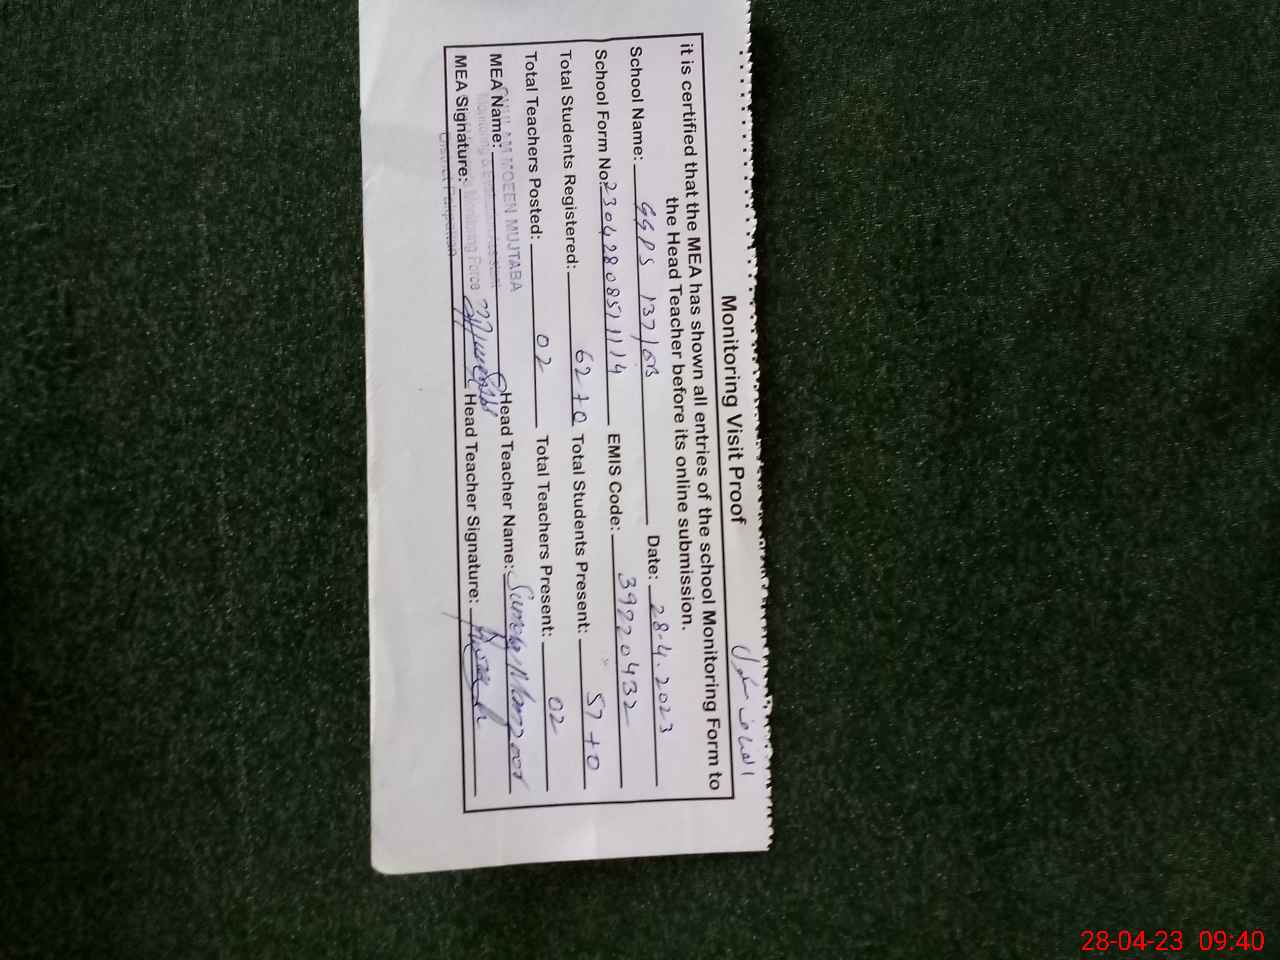 Monitoring Visit Proof
it is certified that the MEA has shown all entries of the school Monitoring Form to
the Head Teacher before its online submission.
School Name: GGPS 137/ Date: 28-4-2023
School Form No: EMIS Code: 39220432
Total Students Registered: 62+0 Total Students Present: 57+0
Total Teachers Posted: 02 Total Teachers Present: 02
GHULAM MOEEN MUJTABA
MEA Name: Head Teacher Name: Sumera Manzoor
Monitoring & Evaluation Assistant
MEA Signature: Head Teacher Signature:
Monitoring Force
28-04-23 09:40